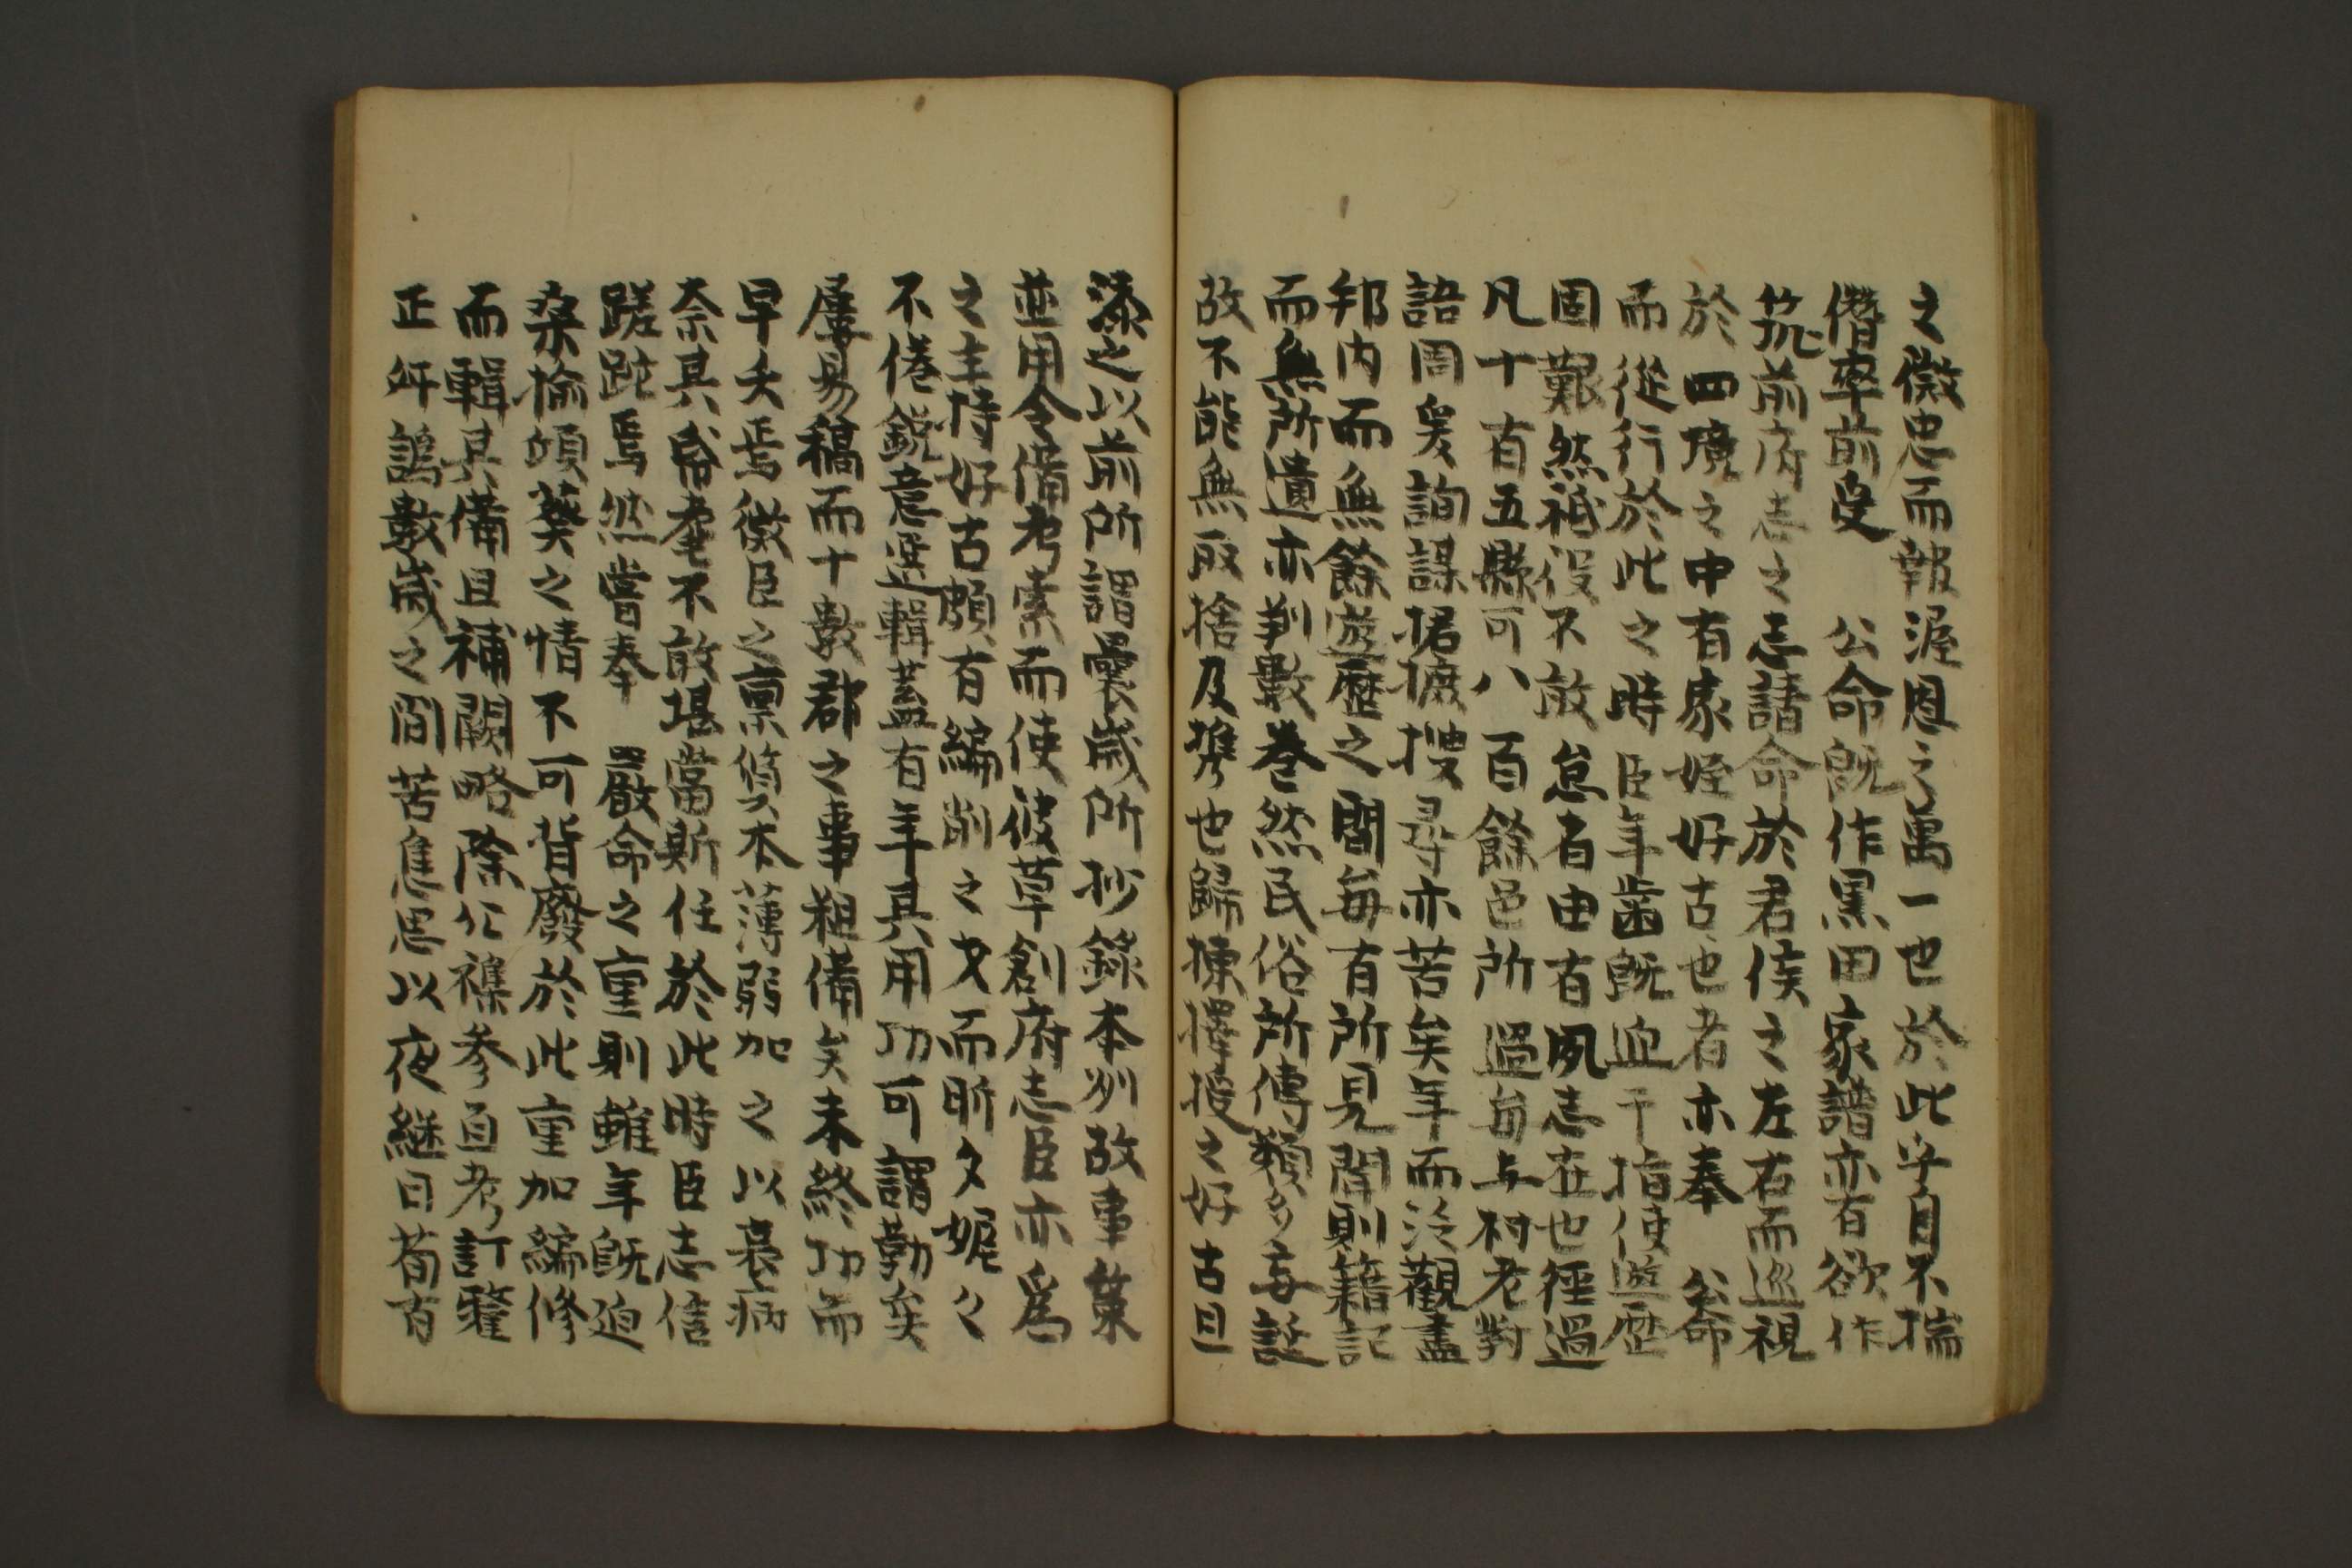 之微忠而報渥恩之萬一也於此乎自不揣
僭率前受　公命既作黒田家譜亦有欲作
筑前府志之志請命於君侯之左右而巡視
於四境之中有家姪好古也者亦奉　公命
而從行於此之時臣年齒既迫干指使遊歴
固艱然祗役不敢怠者由有夙志在也徑過
凡十有五縣可八百餘邑所過毎与村老對
語周爰詢謀捃摭搜尋亦苦矣年而泛觀盡
邦内而無餘遊歴之間毎有所見聞則籍記
而無所遺亦判數巻然民俗所傳類多妄誕
故不能無取捨及携也歸揀擇授之好古且
添之以前所謂曩歳所抄錄本州故事葉
並用令備考索而使彼草創府志臣亦爲
之主持好古頗有編削之才而昕夕娓々
不倦鋭意選輯蓋有年其用功可謂勤矣
屢易稿而十數郡之事粗備矣未終功而
早夭焉微臣之禀質本薄弱加之以衰病
奈其昏耄不敢堪當斯任於此時臣志信
蹉跎焉然嘗奉　嚴命之重則雖年既迫
桑楡傾葵之情不可背廢於此重加編修
而輯其備且補闕略除公襍參互考訂釐
正訛謁數歳之間苦焦思以夜継日荀有